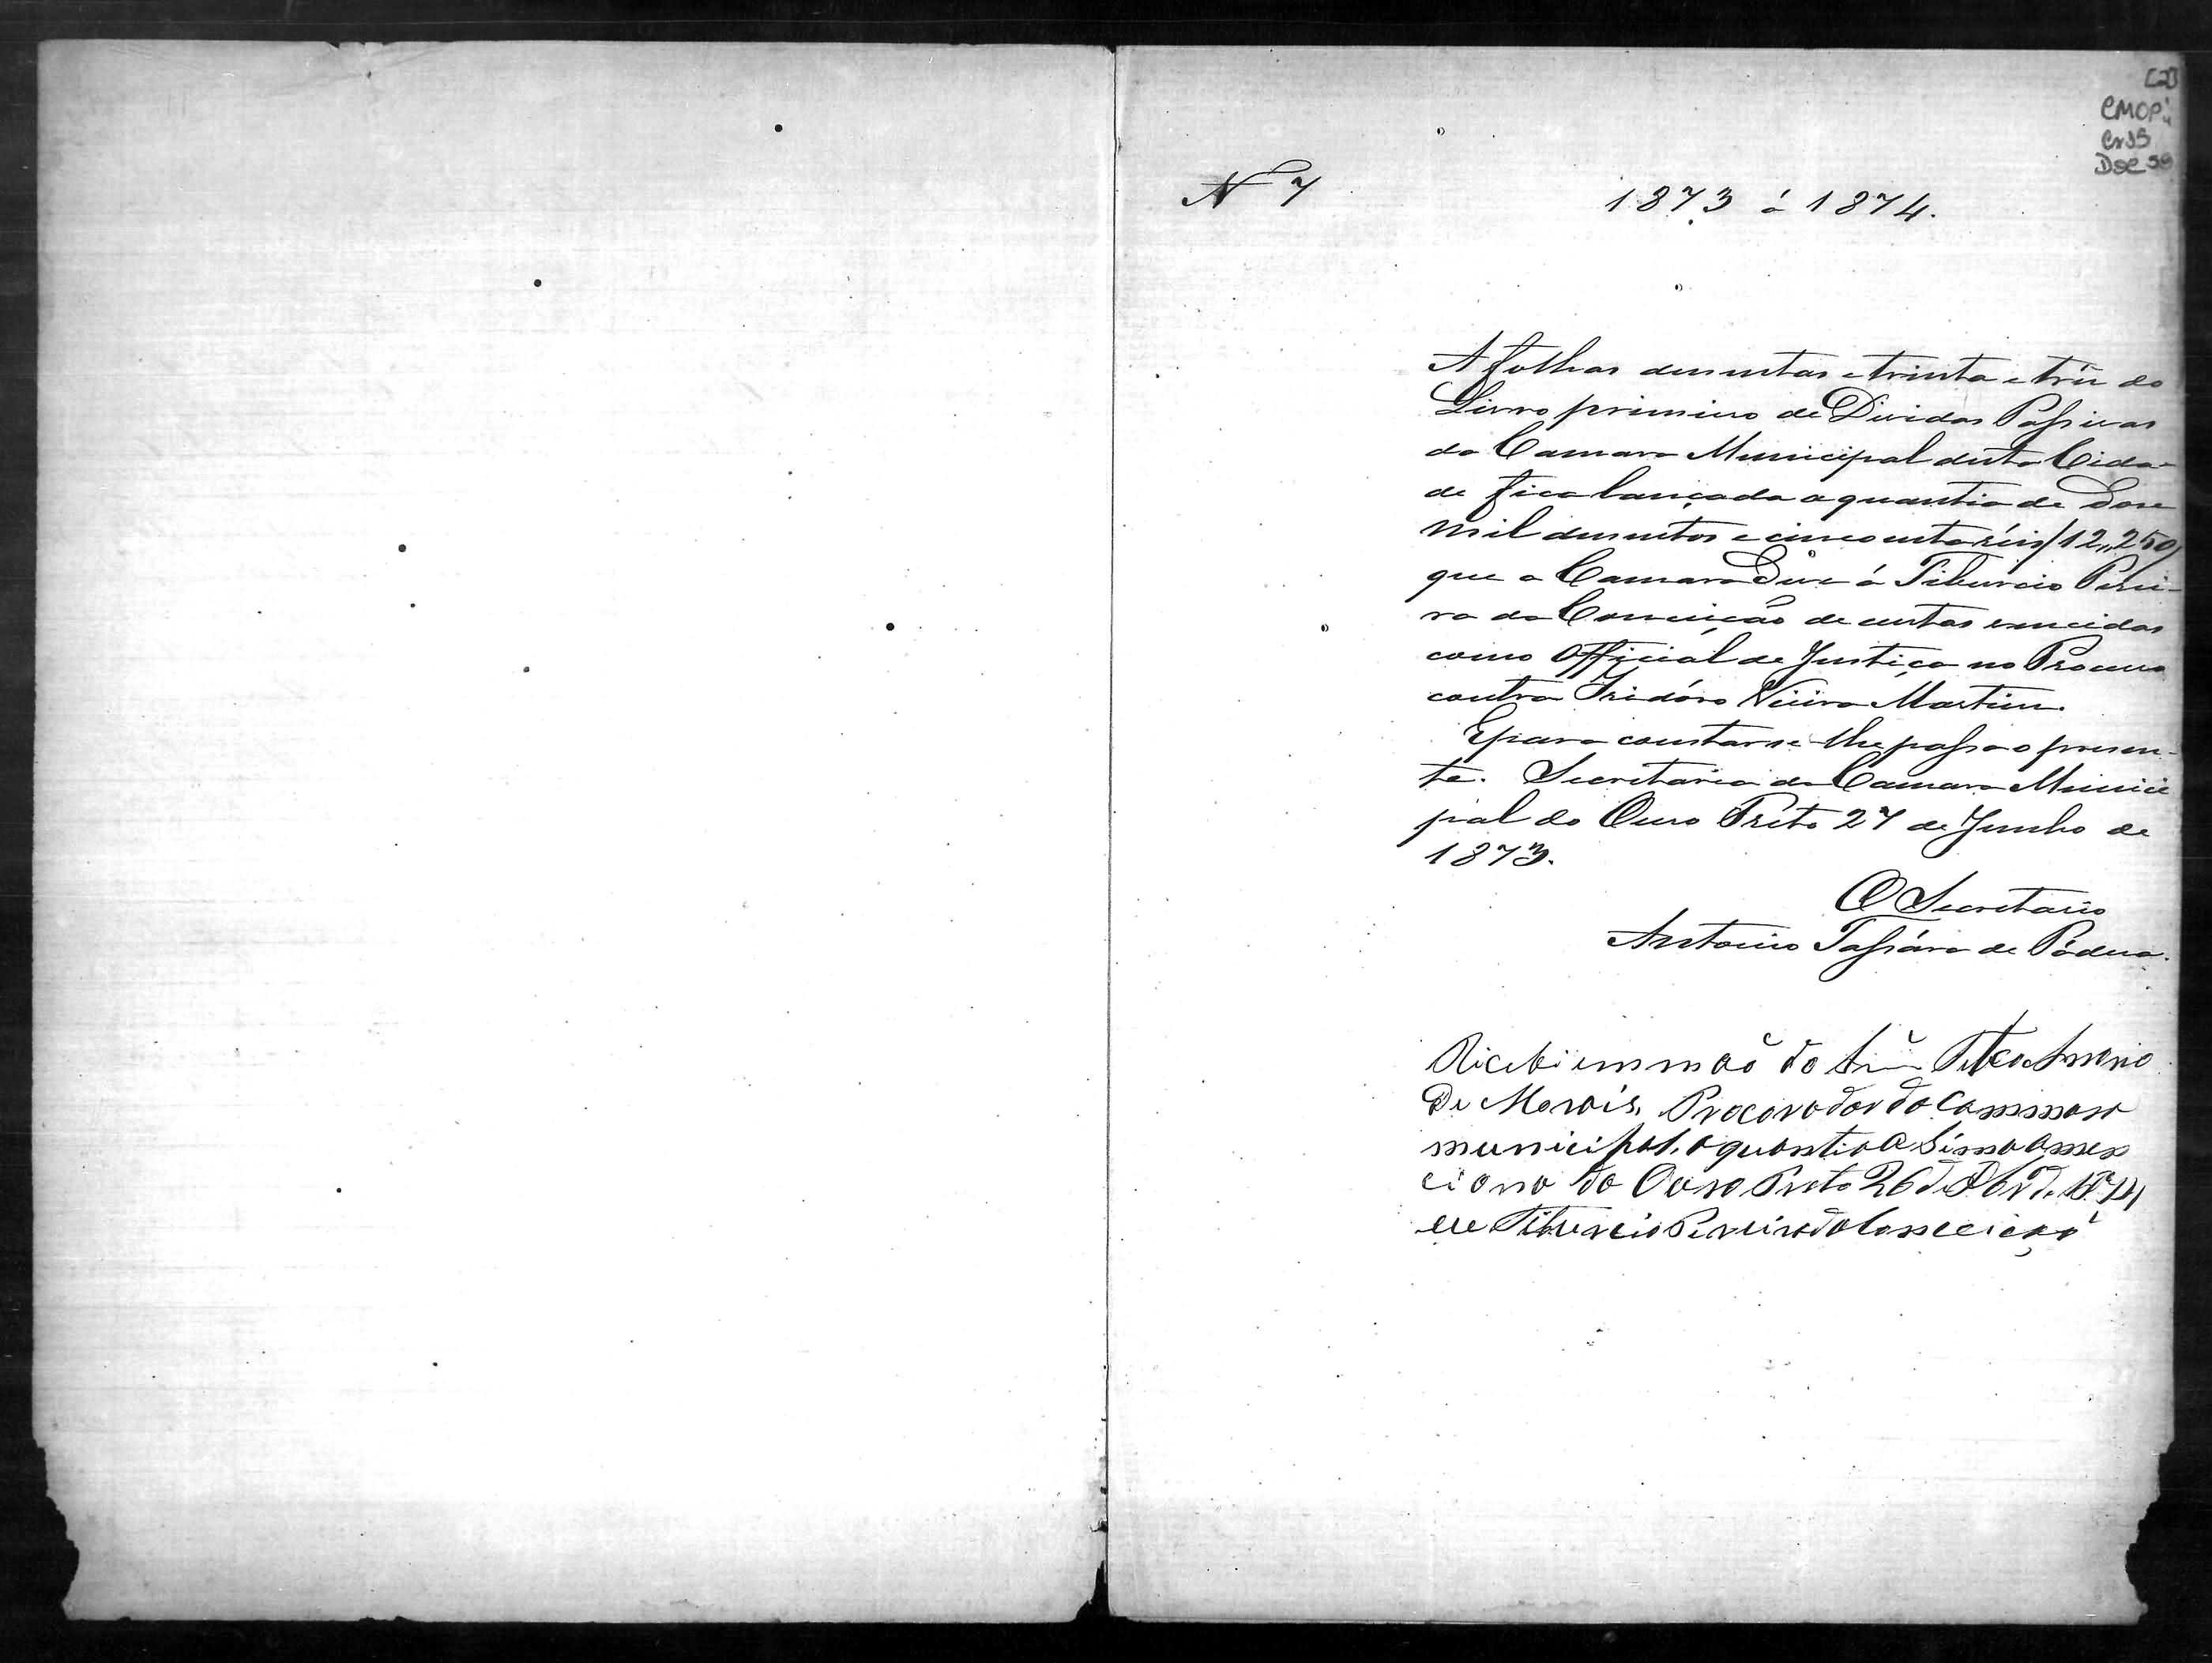 [2]
CMOP
Cx 35
Doc 59
Nº 7
1873 á 1874.
A folhas dusentas e trinta e três do
Livro primeiro de Dividas Passivas
da Camara Municipal desta Cida-
de fica lançada a quantia de Dose
mil dusentos e cincoenta réis (12„250)
que a Camara Deve á Tiburcio Perei-
ra da Conceição de custas vencidas
como Official de Justiça no Processo
contra Isidóro Vieira Martins.
E para constar se lhe passa o presen-
te. Secretaria da Camara Munici
pal do Ouro Preto 27 de Junho de
1873.
O Secretario
Antonio Tassára de Pádua.
Recebi em mão do
de Morais, Procorador da Cammara
municipal, a quantia asima men
cionada Ouro Preto 26 de 1874
eu Tiburcio Pereira da Conceicaõ